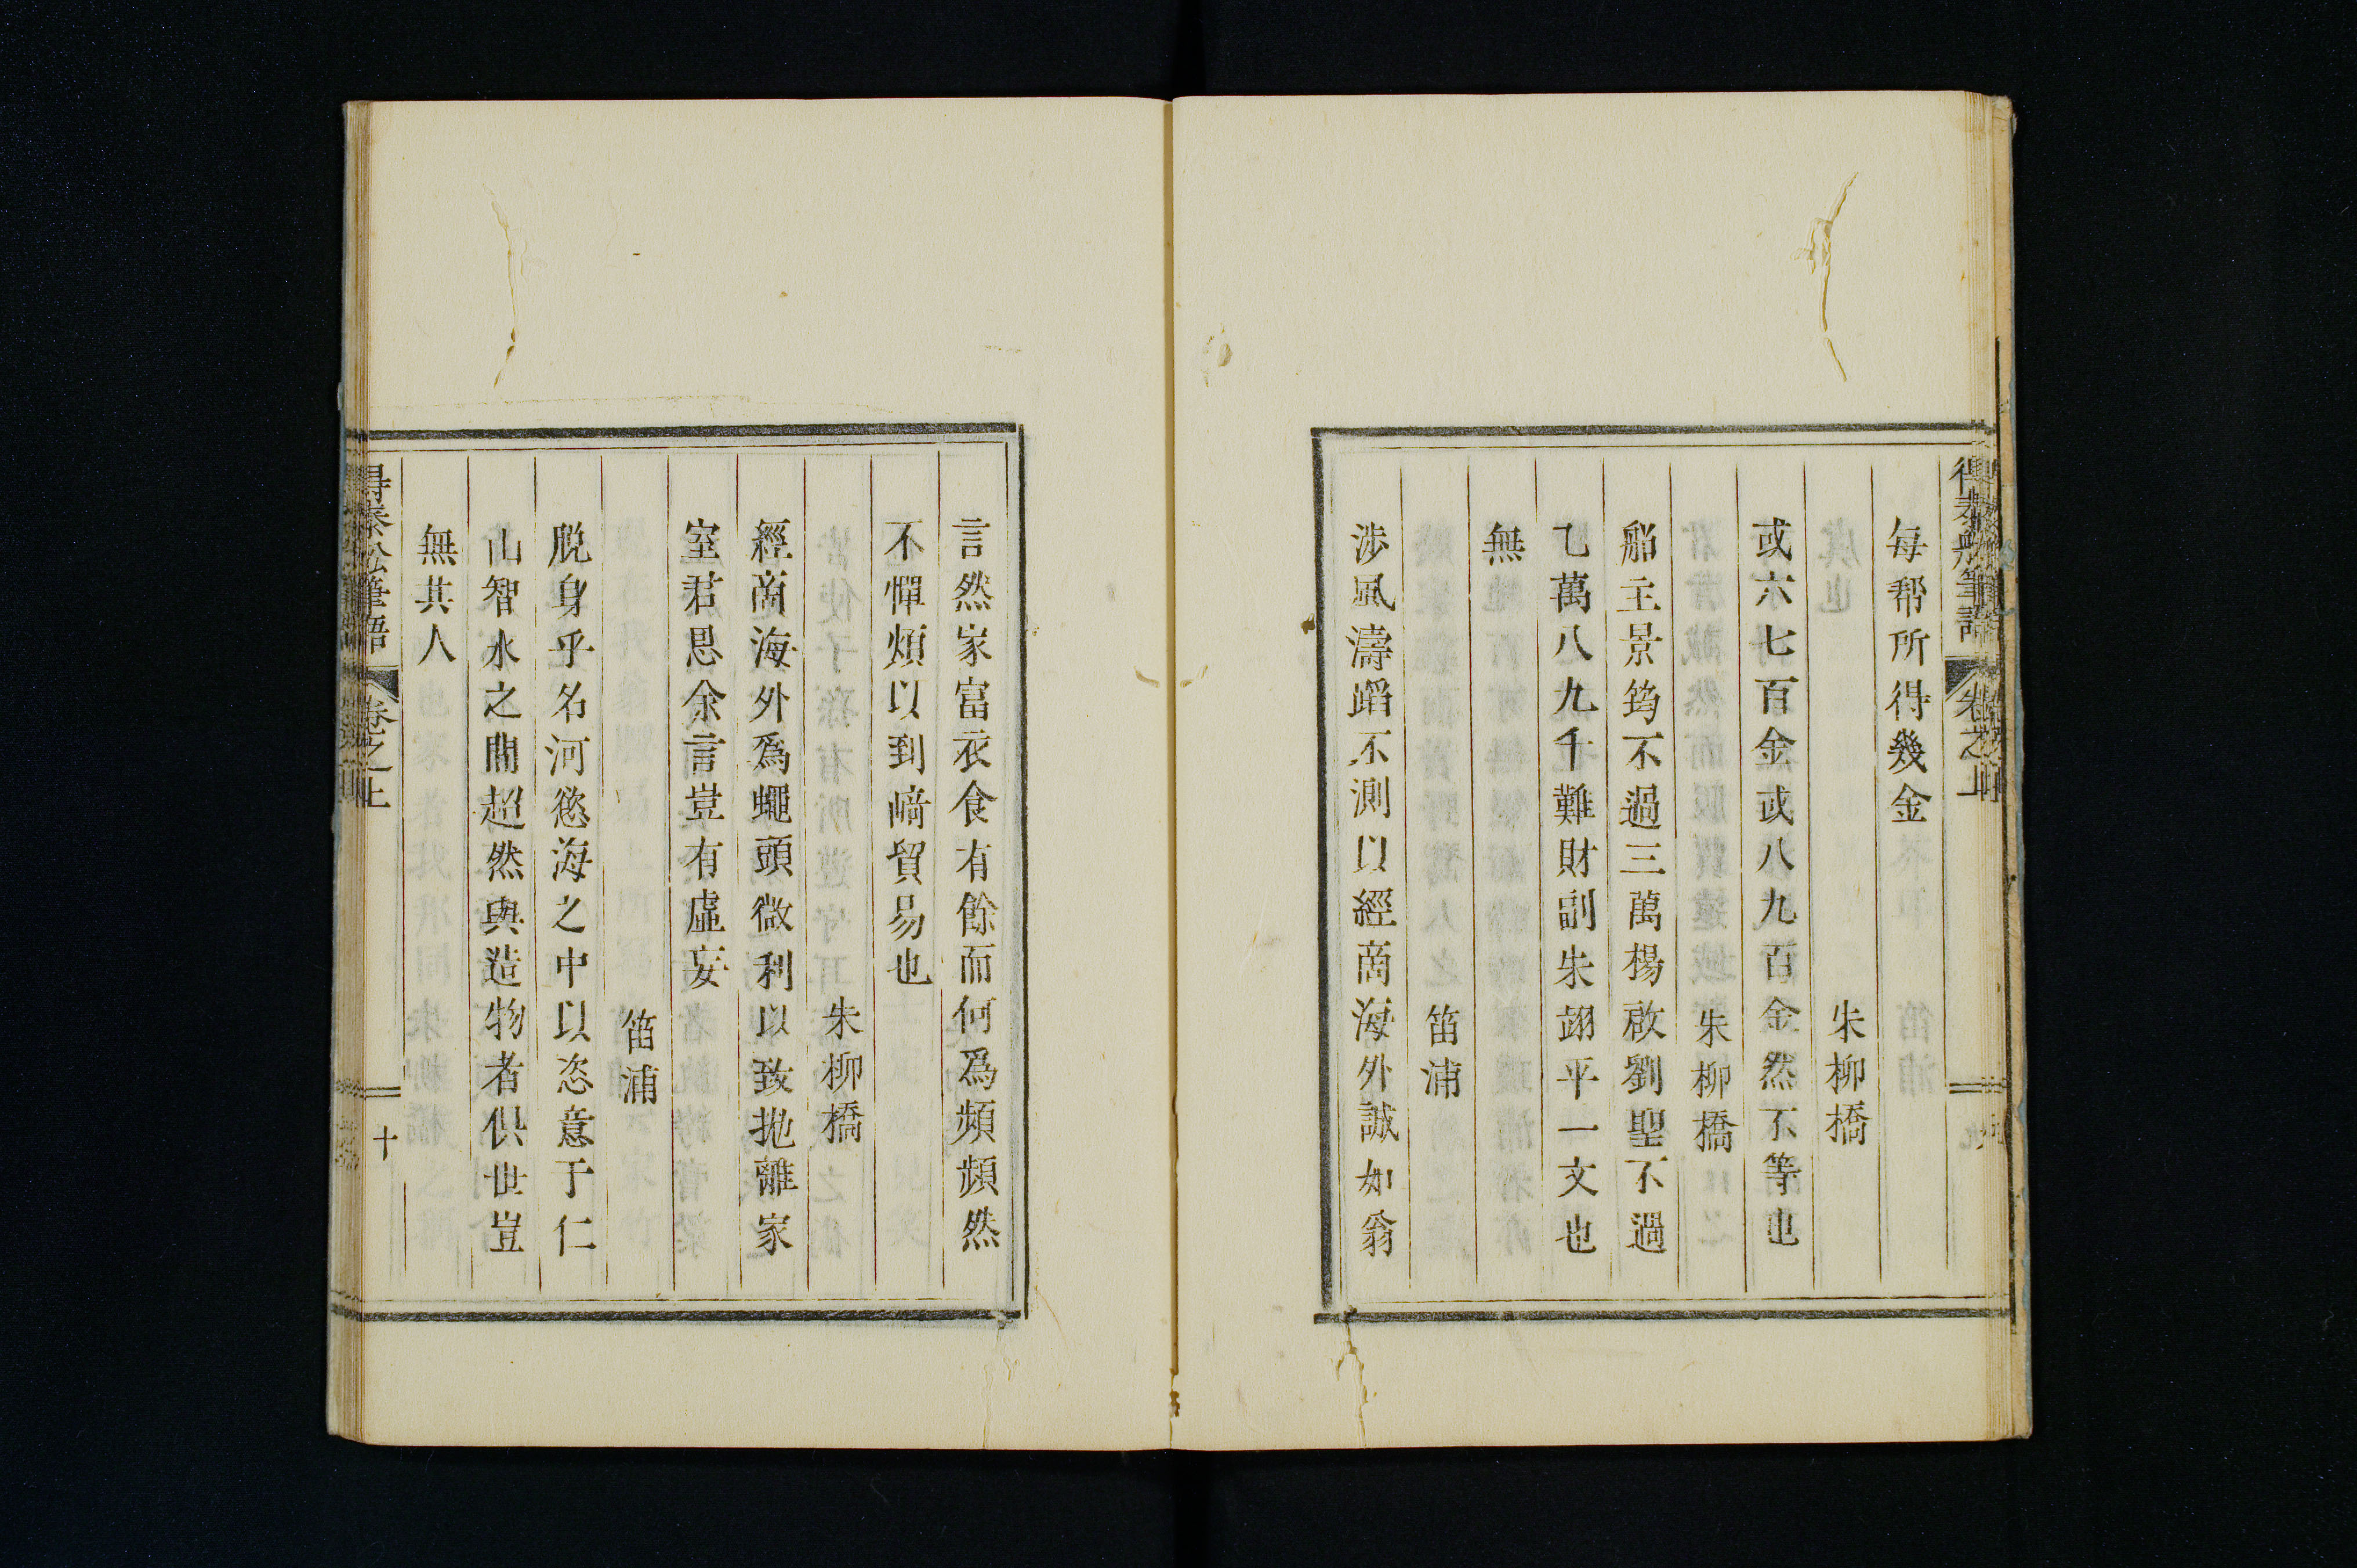 每帮所得幾金
朱柳橋
或六七百金或八九百金然不等也
朱柳橋
船主景筠不過三萬楊啟劉聖不過
乙萬八九千難財副朱翊平一文也
無
笛浦
渉風濤蹈不測以經商海外誠如翁
言然家富衣食有餘而何爲頻頻然
不憚煩以到﨑貿易也
朱柳橋
經商海外爲蠅頭微利以致拋離家
室君思余言豈有虛妄
笛浦
脫身乎名河慾海之中以恣意于仁
山智水之間超然與造物者倶世豈
無其人
卷之上
十